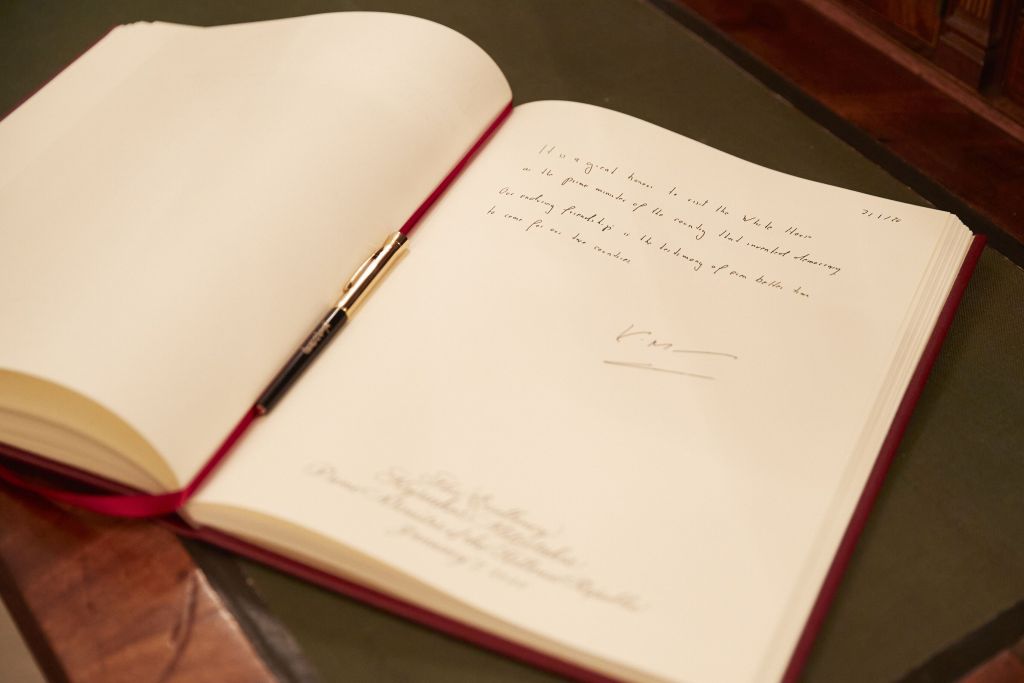 It is a great honour to visit the White House
as the prime minister of the country that invented democracy
Our enduring friendship is the testimony of even better time
to come for our two countries
K. M
His Excellency
Kyriakos Mitsotakis
Prime Minister of the Hellenic Republic
January 7, 2020